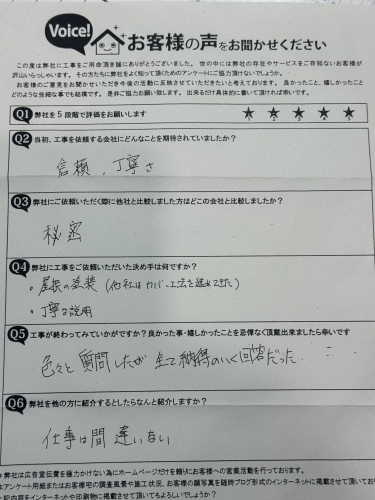 Voice!
お客様の声をお聞かせください
この度は弊社に工事をご用命頂き誠にありがとうございました。世の中には弊社の存在やサービスをご存知ないお客様が
沢山いらっしゃいます。その方たちに弊社をよく知って頂くためのアンケートにご協力頂けないでしょうか。
お客様のご意見をお聞かせいただき今後の活動に反映させていただきたいと考えております。良かったこと、嬉しかったこと
どのような些細な事でも結構です。是非ご協力お願い致します。出来るだけ具体的に書いて頂ければ幸いです。
Q1 弊社を5段階で評価をお願いします
1 2 3 4 5
Q2 当初、工事を依頼する会社にどんなことを期待されていましたか？
信頼，丁寧さ
Q3 弊社にご依頼いただく際に他社と比較しました方はどこの会社と比較しましたか？
秘密
Q4 弊社に工事をご依頼いただいた決め手は何ですか？
・屋根の塗装（他社はカバー工法を進めてきた）
・丁寧な説明
Q5 工事が終わってみていかがですか？良かった事・嬉しかったことを忌憚なく頂戴出来ましたら幸いです
色々と質問したが全て納得のいく回答だった…
Q6 弊社を他の方に紹介するとしたらなんと紹介しますか？
仕事は間違いない
弊社は広告宣伝費を極力かけない為にホームページだけを頼りにお客様への営業活動を行っております。
本アンケート用紙またはお客様宅の調査風景や施工状況、お客様の顔写真を随時ブログ形式のインターネットに掲載させて頂いてお
記内容をインターネットや印刷物に掲載させて頂いてもよろしいでしょうか？